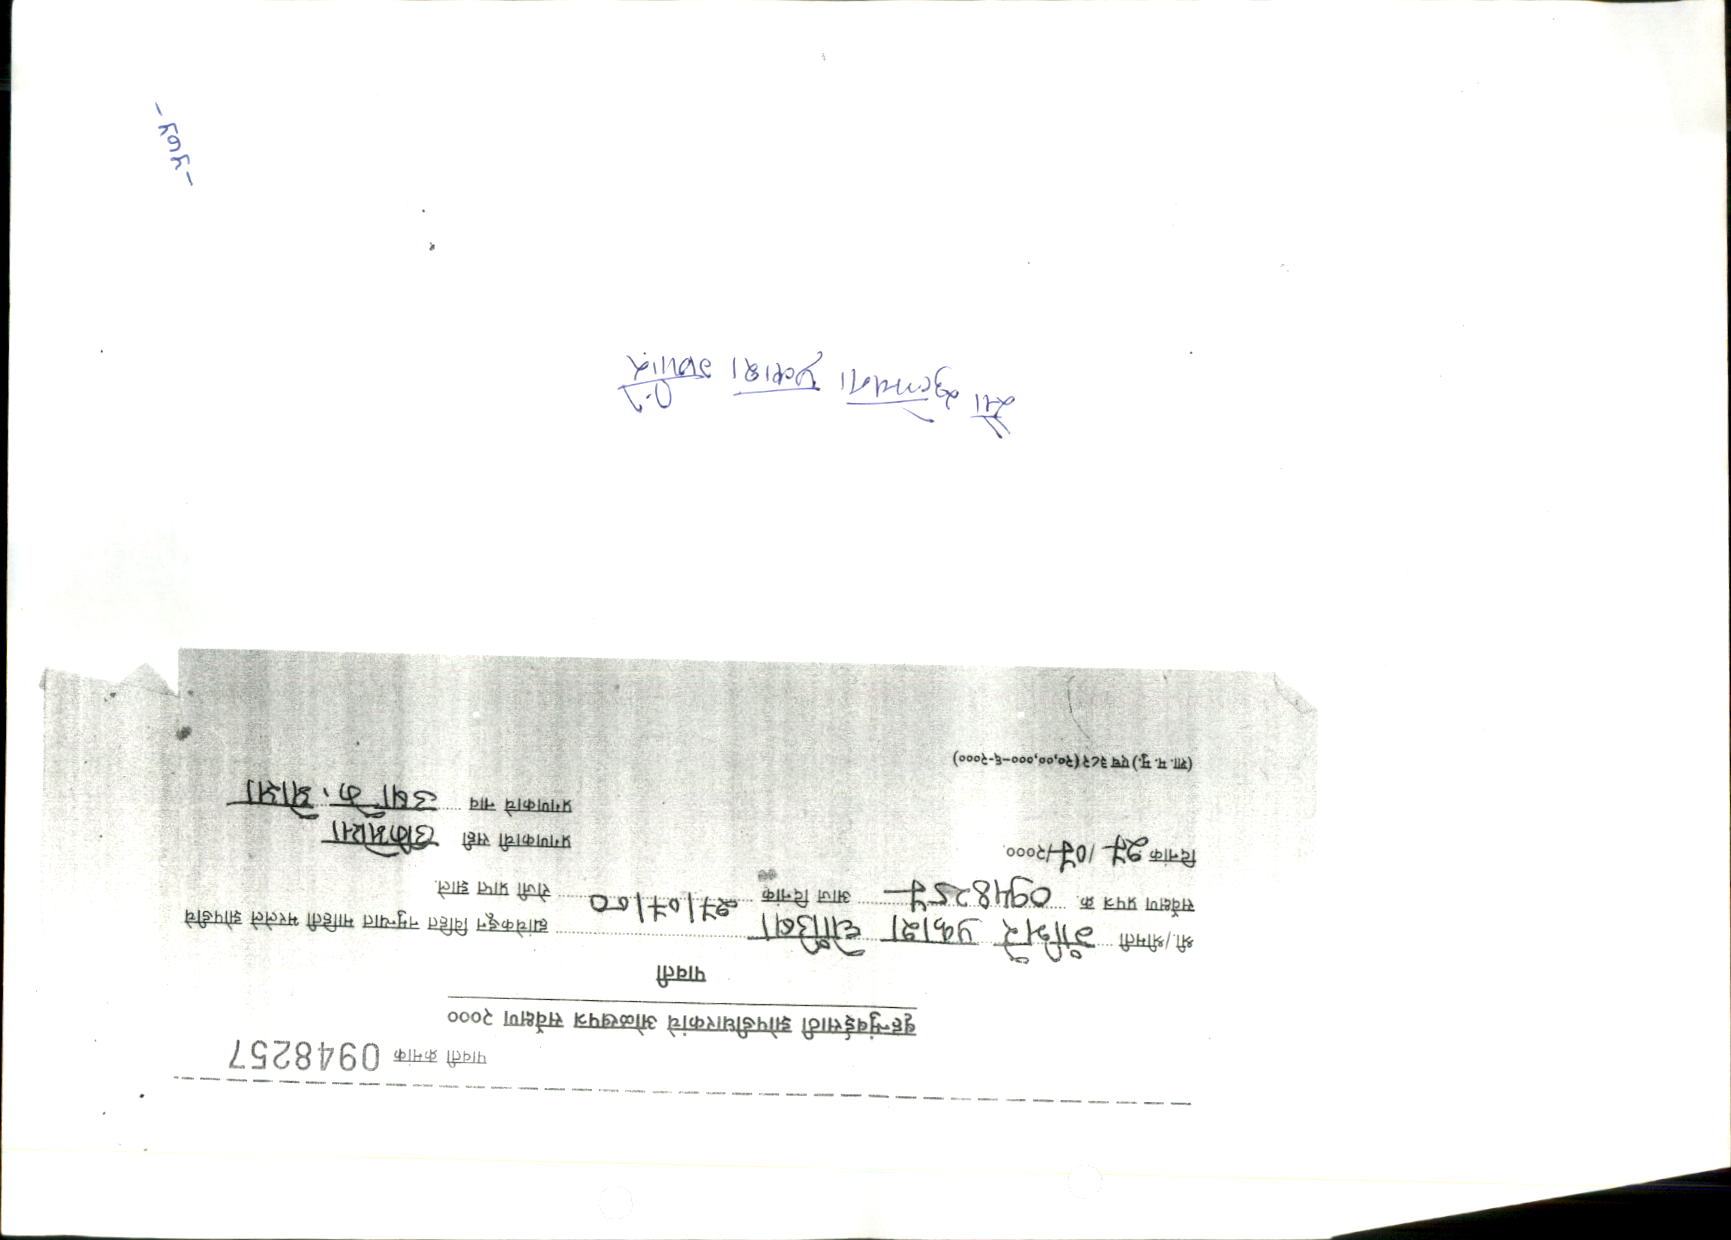 पावती क्रमांक 0948257
बृहन्मुंबईसाठी झोपडीधारकांचे ओळखपत्र सर्वेक्षण २०००
पावती
श्री./श्रीमती गंभिरे प्रकाश धोंडिबा ह्यांचेकडून विहित नमुन्यात माहिती भरलेले झोपडीचे
सर्वेक्षण प्रपत्र क्र. 0948257 आज दिनांक 27/07/00 रोजी प्राप्त झाले.
दिनांक 27/07/२०००.
प्रगणकाची सही
प्रगणकाचे नाव उषा के.
(शा. म. मु.) एच ३८२ (२०,००,०००-६-२०००)
सौ सुलोचना प्रकाश गंभीरे